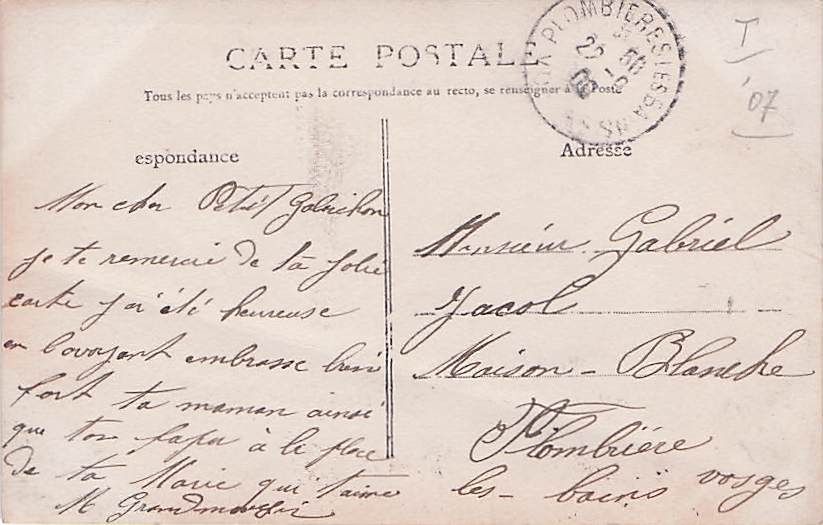 CARTE POSTALE
Tous les pays n'acceptent pas la correspondance au recto, se renseigner à la Poste
PLOMBIERES LES BAINS
T
'07
espondance
Adresse
Mon cher Petit
je te remercie de ta jolie
carte j'ai été heureuse
en l'avoyant embrasse bien
fort ta maman ainsi
que ton papa à la place
de ta Marie qui t'aime
M
Monsieur Gabriel
Jacol
Maison - Blanche
Plombiére
les - bains vosges